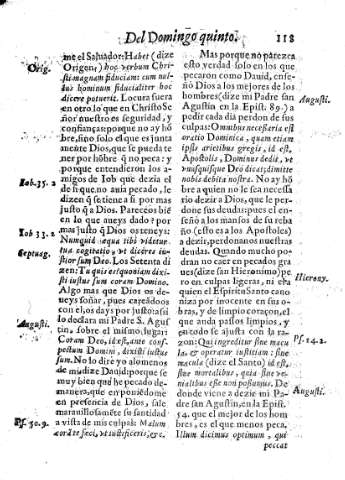 Del Domingo quinto.
118
me el Saluador: Habet (dize
Origen) hoc verbum Chri-
sti magnam fiduciam: cum nul-
dus hominum fiducialiter hoc
dicere potuerit. Locura fuera
en otro lo que en Christo Se
ñor nuestro es seguridad, y
confiança: porque no ay hõ
bre, sino solo el que es junta
mente Dios, que se pueda te
ner por hõbre q̃ no peca: y
porque entendieron los a-
migos de Iob que dezia el
de si que no auia pecado, le
dizen q̃ se tiene a si por mas
justo q̃ a Dios. Pareceos biẽ
en lo que aueys dado? por
mas justo q̃ Dios os teneys:
Nunquid æqua tibi videtur
tua cogitatio, vt diceres iu-
stior sum Deo. Los Setenta di
zen: Tu quis es quoniam dixi-
sti iustus sum coram Domino.
Algo mas que Dios os de-
ueys soñar, pues careãdoos
con el, os days por justo: assi
lo declara mi Padre S. Agus
tin, sobre el mismo lugar:
Coram Deo, id est, ante cons-
pectum Domini, dixisti iustus
sum. No lo dire yo alomenos
de mi, dize Dauid: porque se
muy bien que he pecado de-
manera, que en poniẽdome
en presencia de Dios, sale
marauillosamẽte su santidad
a vista de mis culpas: Malum
coràm te feci, vt iustificeris, &c.
Orig.
Iob. 35. 2
Iob 33. 2
Septuag.
Augusti.
Ps. 50. 9.
Mas porque no parezca
esto verdad solo en los que
pecaron como Dauid, ense-
ñò Dios a los mejores de los
hombres (dize mi Padre san
Agustin en la Epist. 89.) a
pedir cada dia perdon de sus
culpas: Omnibus necessaria est
oratio Dominica, quam etiam
ipsis arietibus gregis, id est,
Apostolis, Dominus dedit, vt
vnusquisque Deo dicat; dimitte
nobis debita nostra. No ay hõ
bre a quien no le sea necessa
rio dezir a Dios, que le per-
done sus deudas: pues el en-
señò a los mansos de su reba
ño (esto es a los Apostoles)
a dezir, perdonanos nuestras
deudas. Quando mucho po-
dran no caer en pecados gra
ues (dize san Hieronimo) pe
ro en culpas ligeras, ni eñã
quien el Espiritu Santo cano
niza por inocente en sus o-
bras, y de limpio coraçon, el
que anda passos limpios, y
en todo se ajusta con la ra-
zon: Qui ingreditur sine macu
la, & operatur iustitiam: sine
macula (dize el Santo) id est,
sine mortalibus, quia sine ve-
nialibus esse non possumus. De
donde viene a dezir mi Pa-
dre san Agustin, en la Epist.
54. que el mejor de los hom
bres, es el que menos peca.
Illum dicimus optimum, qui
peccat
Augusti.
Hierony.
Ps. 14. 2.
Augusti.